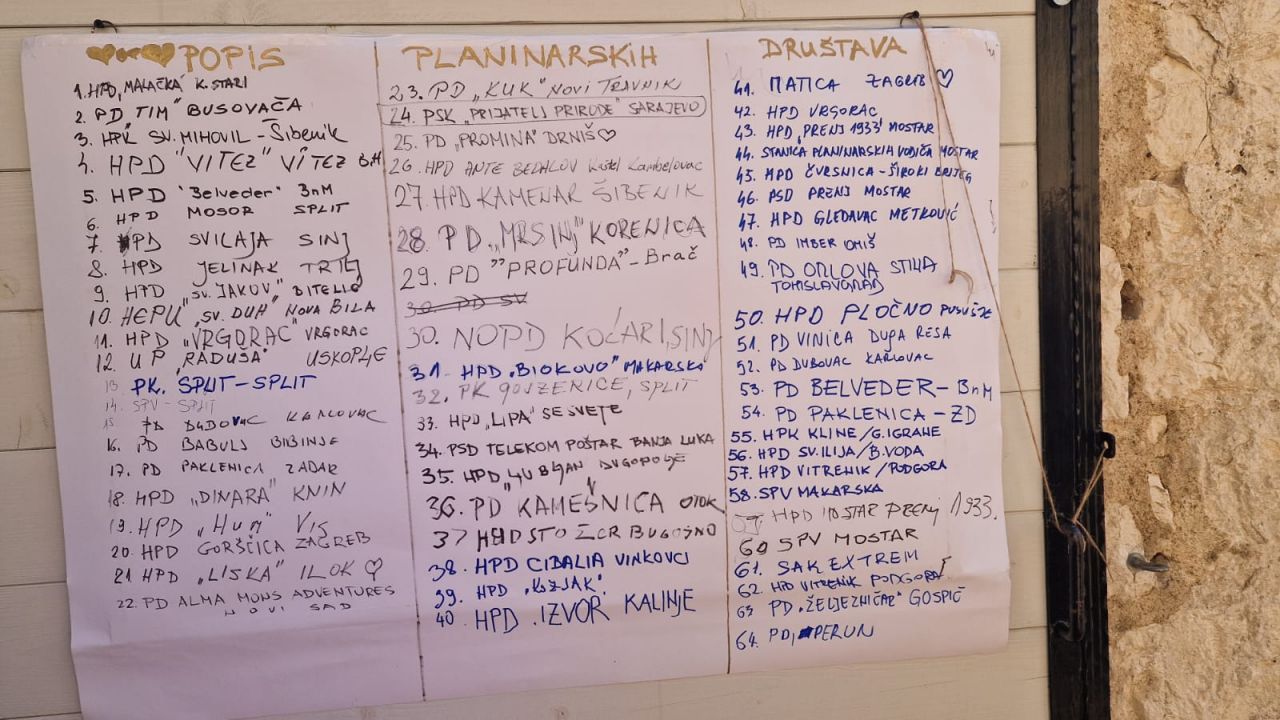 POPIS PLANINARSKIH DRUŠTAVA
1. HPD „MALAČKA" K. STARI
2. PD „TIM" BUSOVAČA
3. HPK SV. MIHOVIL - ŠIBENIK
4. HPD "VITEZ" VITEZ BiH
5. HPD "Belveder" BnM
6. HPD MOSOR SPLIT
7. HPD SVILAJA SINJ
8. HPD JELINAK TRILJ
9. HPD „SV. JAKOV" BITELIĆ
10. HEPU „SV. DUH" NOVA BILA
11. HPD „VRGORAC" VRGORAC
12. UP „RADUŠA" USKOPLJE
13 PK. SPLIT-SPLIT
14. SPV - SPLIT
15 PD DUBOVAC KARLOVAC
16. PD BABULJ BIBINJE
17. PD PAKLENICA ZADAR
18. HPD „DINARA" KNIN
19. HPD „HUM" VIS
20. HPD GORŠČICA ZAGREB
21 HPD „LISKA" ILOK ♡
22. PD ALMA MONS ADVENTURES
NOVI SAD
23. PD „KUK" NOVI TRAVNIK
24. PSK „PRIJATELJ PRIRODE" SARAJEVO
25. PD „PROMINA" DRNIŠ ♡
26. HPD ANTE BEDALOV Kaštel Kambelovac
27. HPD KAMENAR ŠIBENIK
28. PD „MRSINJ" KORENICA
29. PD "PROFUNDA" - Brač
30. PD SV
30. NOPD KOČARI, SINJ
31. HPD „BIOKOVO" MAKARSKA
32. PK GOJZENICE, SPLIT
33. HPD „LIPA" SESVETE
34. PSD TELEKOM POŠTAR BANJA LUKA
35. HPD „LJUBLJAN" DUGOPOLJE
36. PD KAMEŠNICA OTOK
37 HPD STOŽER BUGOJNO
38. HPD CIBALIA VINKOVCI
39. HPD „KOZJAK"
40 HPD IZVOR KALINJE
41. MATICA ZAGREB ♡
42. HPD VRGORAC
43. HPD „PRENJ 1933" MOSTAR
44. STANICA PLANINARSKIH VODIČA MOSTAR
45. HPD ČVRSNICA - ŠIROKI BRIJEG
46. PSD PRENJ MOSTAR
47. HPD GLEDAVAC METKOVIĆ
48. PD IMBER OMIŠ
49. PD ORLOVA STINA
TOMISLAVGRAD
50. HPD PLOČNO POSUŠJE
51. PD VINICA DUGA RESA
52. PD DUBOVAC KARLOVAC
53. PD BELVEDER - BnM
54. PD PAKLENICA - ZD
55. HPK KLINE/G. IGRAHE
56. HPD SV. ILIJA/B. VODA
57. HPD VITRENIK/PODGORA
58. SPV MAKARSKA
59. HPD MOSTAR PRENJ 1933.
60 SPV MOSTAR
61. SAK EXTREM
62. HPD VITRENIK PODGORA
63 PD „ŽELJEZNIČAR" GOSPIĆ
64. PD, PERUN